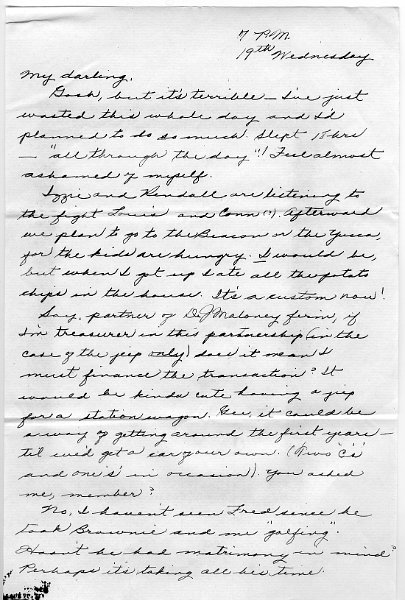 7 P.M
19th Wednesday
My darling,
Gosh, but it's terrible — I've just
wasted this whole day and I'd
planned to do so much. Slept 18 hrs
— "all through the day"! Feel almost
ashamed of myself.
Izzie and Kendall are listening to
the fight Louis and Conn(?). Afterward
we plan to go to the Beacon or the Yucca,
for the kids are hungry. I would be,
but when I got up I ate all the potato
chips in the house. It's a custom now!
Say, partner of D.J Maloney firm, if
I'm treasurer in this partnership (in the
case of the jeep only) does it mean I
must finance the transaction? It
would be kinda cute having a jeep
for a station wagon. Gee, it could be
a way of getting around the first years —
til we'd get a car your own. (Two "c's"
and one "s" in occasion). You asked
me, member?
No, I haven't seen Fred since he
took Brownie and me "golfing".
Hasn't he had matrimony in mind?
Perhaps it's taking all his time.